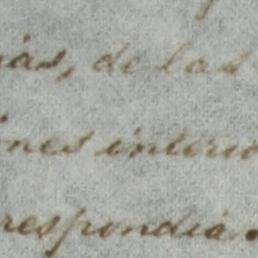 ás, de las
ines interio
respondia.